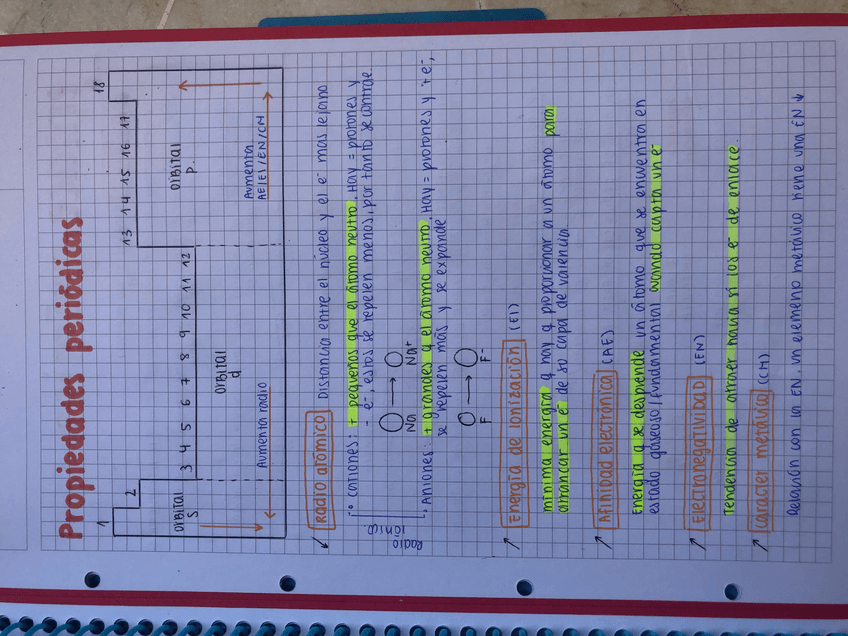 Propiedades periódicas
1
2
3 4 5 6 7 8 9 10 11 12
13 14 15 16 17
18
orbital
s
orbital
d
orbital
p.
Aumenta radio
Aumenta
AE/EI/EN/CM
Radio atómico Distancia entre el núcleo y el e⁻ mas lejano
Radio
iónico
° cationes: + pequeños que el átomo neutro. Hay = protones y
- e⁻, estos se repelen menos, por tanto se contrae.
Na → Na⁺
° Aniones: + grandes q el átomo neutro. Hay = protones y + e⁻,
se repelen más y se expande
F → F⁻
Energía de Ionización (EI)
mínima energía q hay q proporcionar a un átomo para
arrancar un e⁻ de su capa de valencia
Afinidad electrónica (AE)
Energía q se desprende un átomo que se encuentra en
estado gaseoso/fundamental cuando capta un e⁻
Electronegatividad (EN)
Tendencia de atraer hacia sí los e⁻ de enlace.
Carácter metálico (CM)
Relación con la EN. un elemento metálico tiene una EN ↓